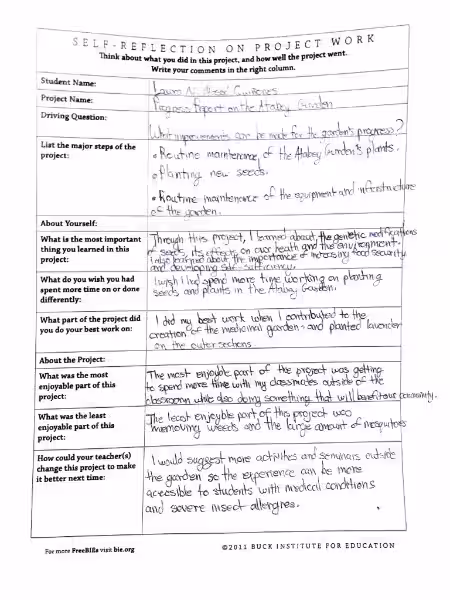 SELF-REFLECTION ON PROJECT WORK
Think about what you did in this project, and how well the project went.
Write your comments in the right column.
Student Name:
Project Name:
Progress Report on the Atabey Garden
Driving Question:
What improvements can be made for the garden's progress?
List the major steps of the
project:
• Routine maintenance of the Atabey Garden's plants.
• Planting new seeds.
• Routine maintenance of the equipment and infrastructure
of the garden.
About Yourself:
What is the most important
thing you learned in this
project:
Through this project, I learned about the genetic modifications
of seeds, its effects on our health and the environment.
I also learned about the importance of increasing food security
and developing self-sufficiency.
What do you wish you had
spent more time on or done
differently:
I wish I had spend more time working on planting
seeds and plants in the Atabey Garden.
What part of the project did
you do your best work on:
I did my best work when I contributed to the
creation of the medicinal garden and planted lavender
on the outer sections.
About the Project:
What was the most
enjoyable part of this
project:
The most enjoyable part of the project was getting
to spend more time with my classmates outside of the
classroom while also doing something that will benefit our community.
What was the least
enjoyable part of this
project:
The least enjoyable part of this project was
removing weeds and the large amount of mosquitoes
How could your teacher(s)
change this project to make
it better next time:
I would suggest more activities and seminars outside
the garden so the experience can be more
accesible to students with medical conditions
and severe insect allergies.
For more FreeBIEs visit bie.org
©2011 BUCK INSTITUTE FOR EDUCATION